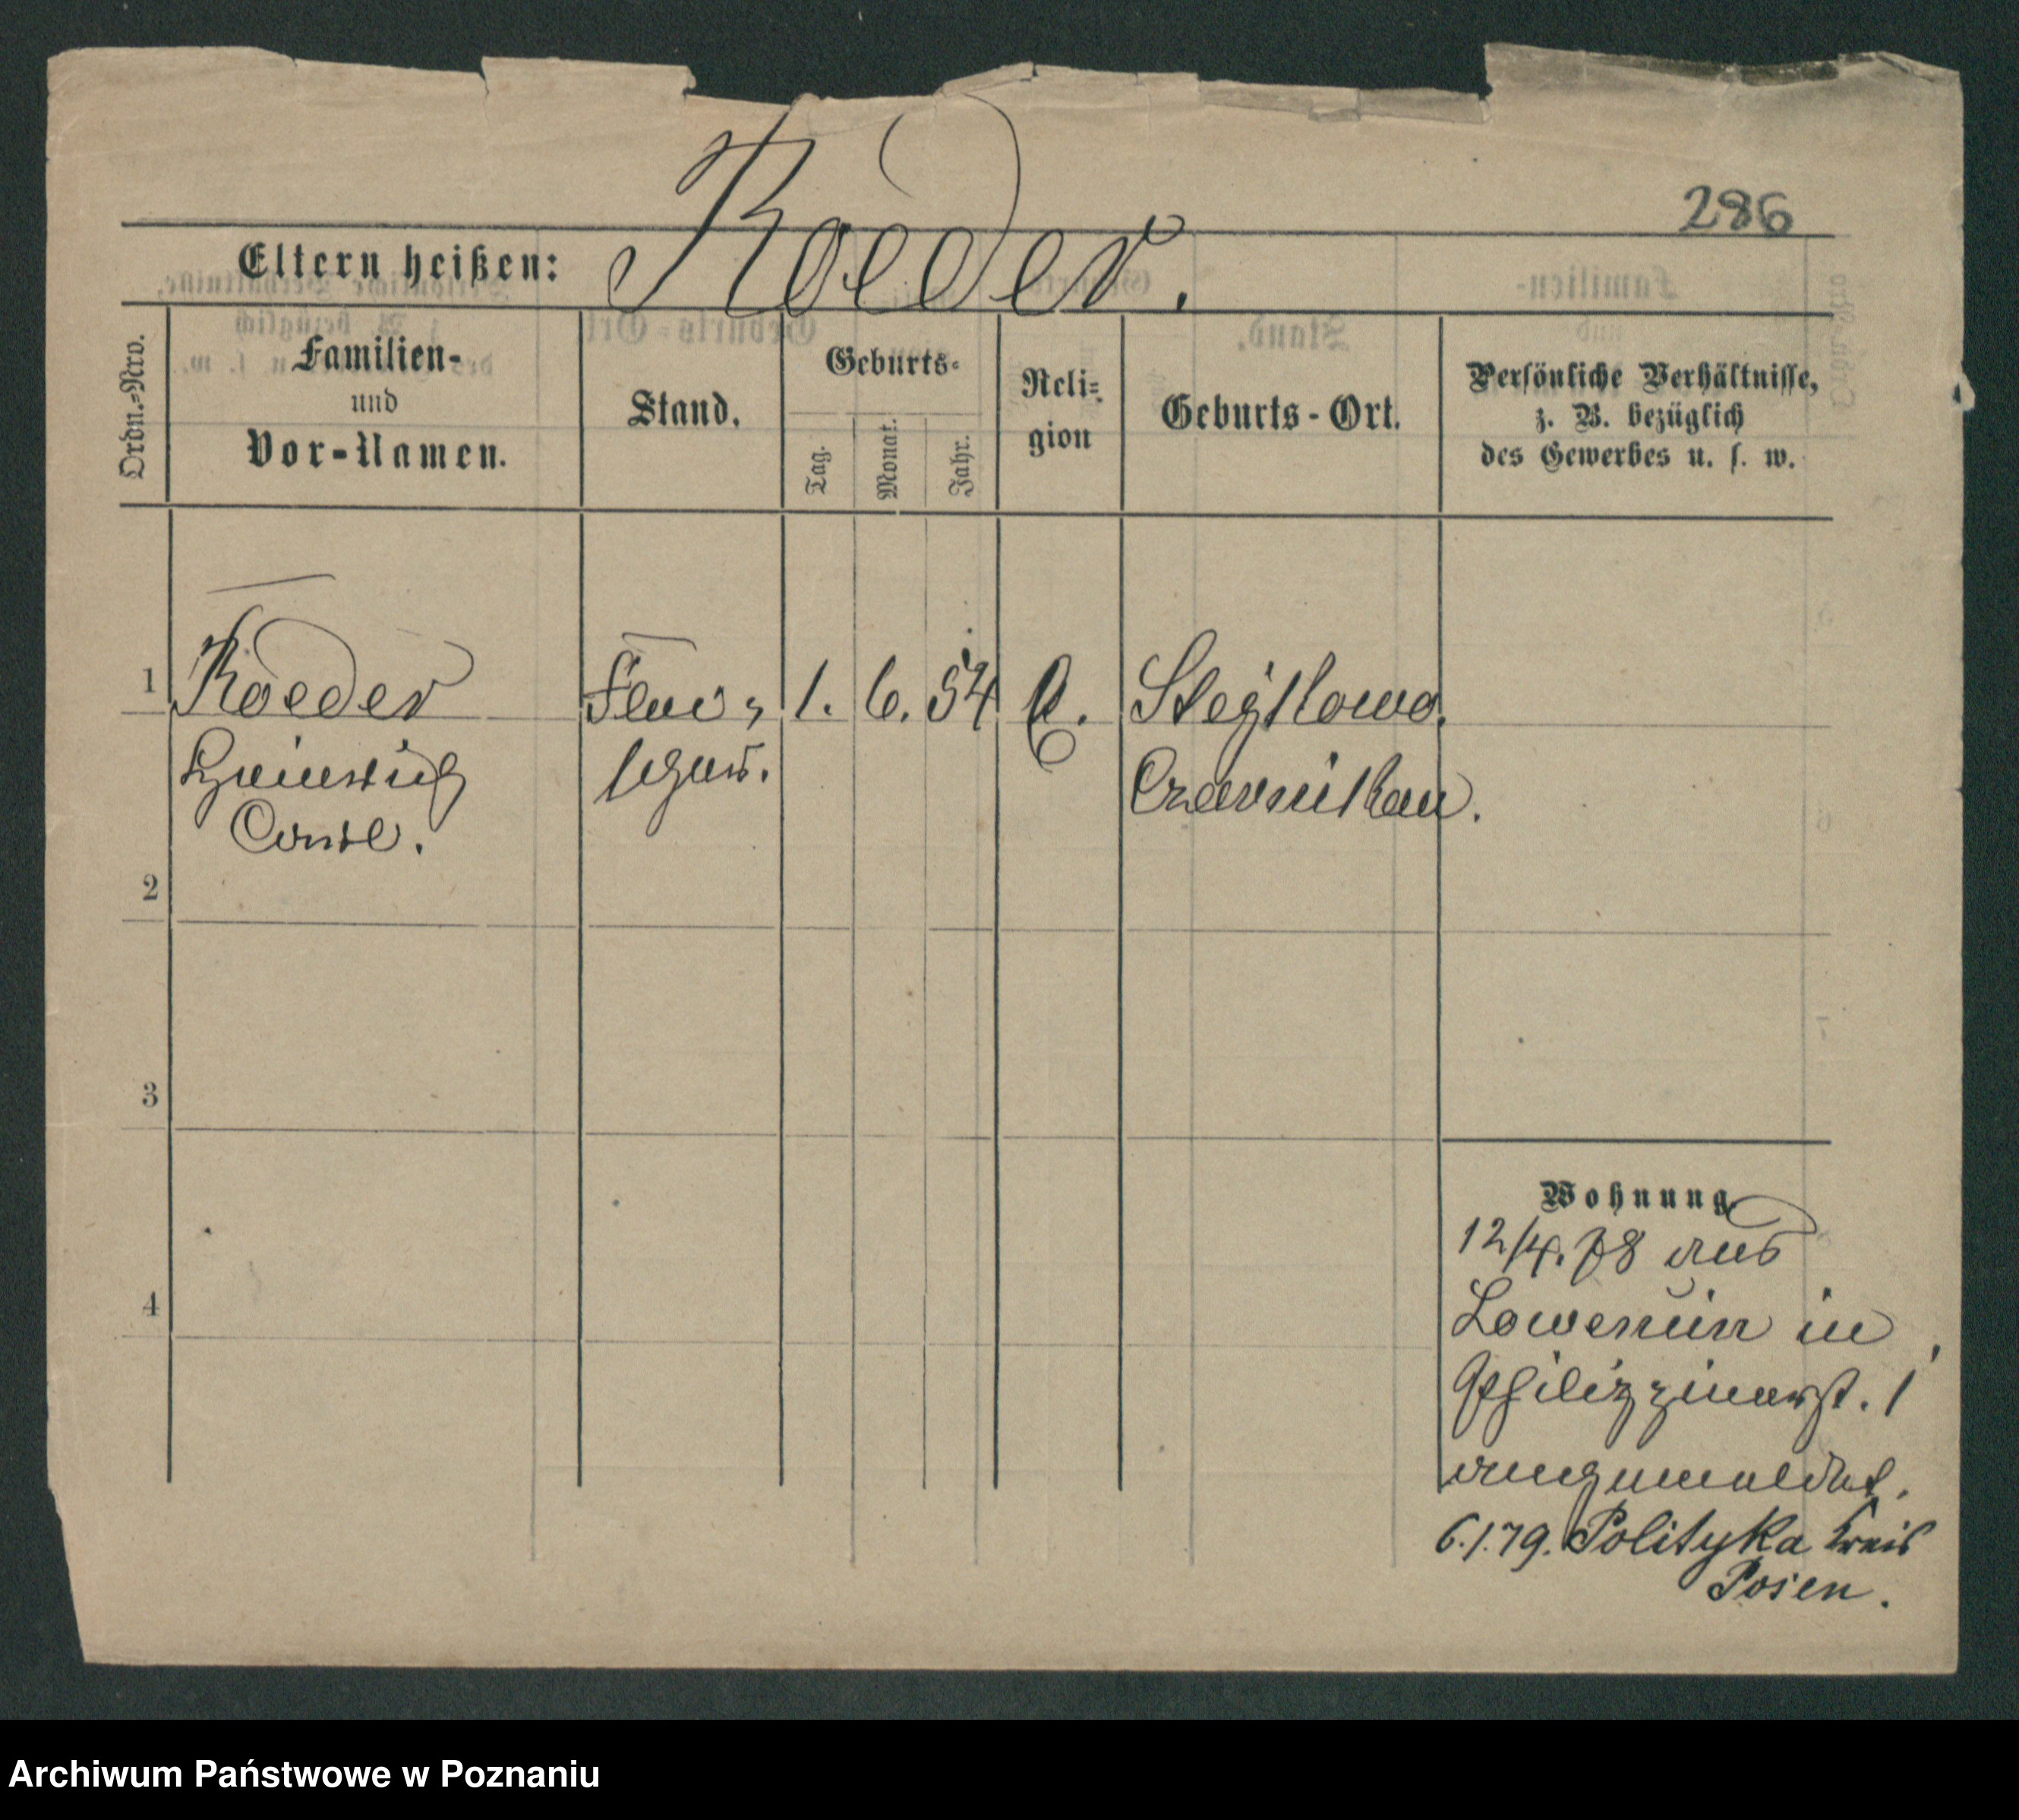 286
Eltern heißen: Roeder.
Ordn.-Nro.
Familien-
und
Vor-Namen.
Stand.
Geburts-
Tag.
Monat.
Jahr.
Reli-
gion
Geburts-Ort.
Persönliche Verhältnisse,
z. B. bezüglich
des Gewerbes u. s. w.
1 Roeder 1. 6. 54
Heinrich
Carl.
Czarnikau.
2
3
4
Wohnung
12/4. 78 aus
in
1
angemeldet.
6.1.79. Polityka Kreis
Posen.
Archiwum Państwowe w Poznaniu